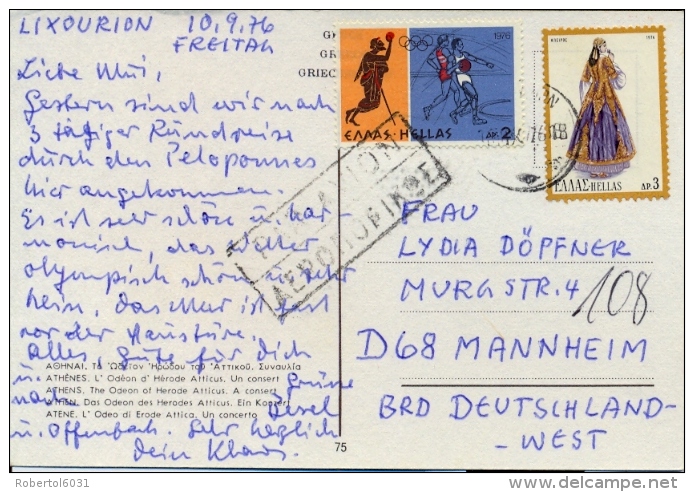 LIXOURION 10.9.76
FREITAG
Liebe Mui,
Gestern sind wir nach
3 tägiger Rundreise
durch den Peloponnes
hier angekommen.
Es ist sehr schön u. har-
monisch, das Wetter
olympisch schön u. sehr
heiß, das Meer ist fast
vor der Haustüre.
Alles Gute für Dich
u. Grüsse
nach
u. Offenbach. Sehr herzlich
Dein Klaus.
ΑΘΗΝΑΙ. Τὸ Ὠδεῖον Ἡρώδου τοῦ Ἀττικοῦ. Συναυλία
ATHÈNES. L' Odéon d' Hérode Atticus. Un concert
ATHENS. The Odeon of Herode Atticus. A concert
ATHEN. Das Odeon des Herodes Atticus. Ein Konzert
ATENE. L' Odeo di Erode Attica. Un concerto
75
GR
GREC
GRIEC
1976
ΕΛΛΑΣ·HELLAS ΔΡ. 2
1974
ΕΛΛΑΣ·HELLAS ΔΡ. 3
PAR AVION
ΑΕΡΟΠΟΡΙΚΩΣ
FRAU
LYDIA DÖPFNER
MURGSTR. 4
108
D68 MANNHEIM
BRD DEUTSCHLAND-
-WEST
Robertol6031
delcampe.net